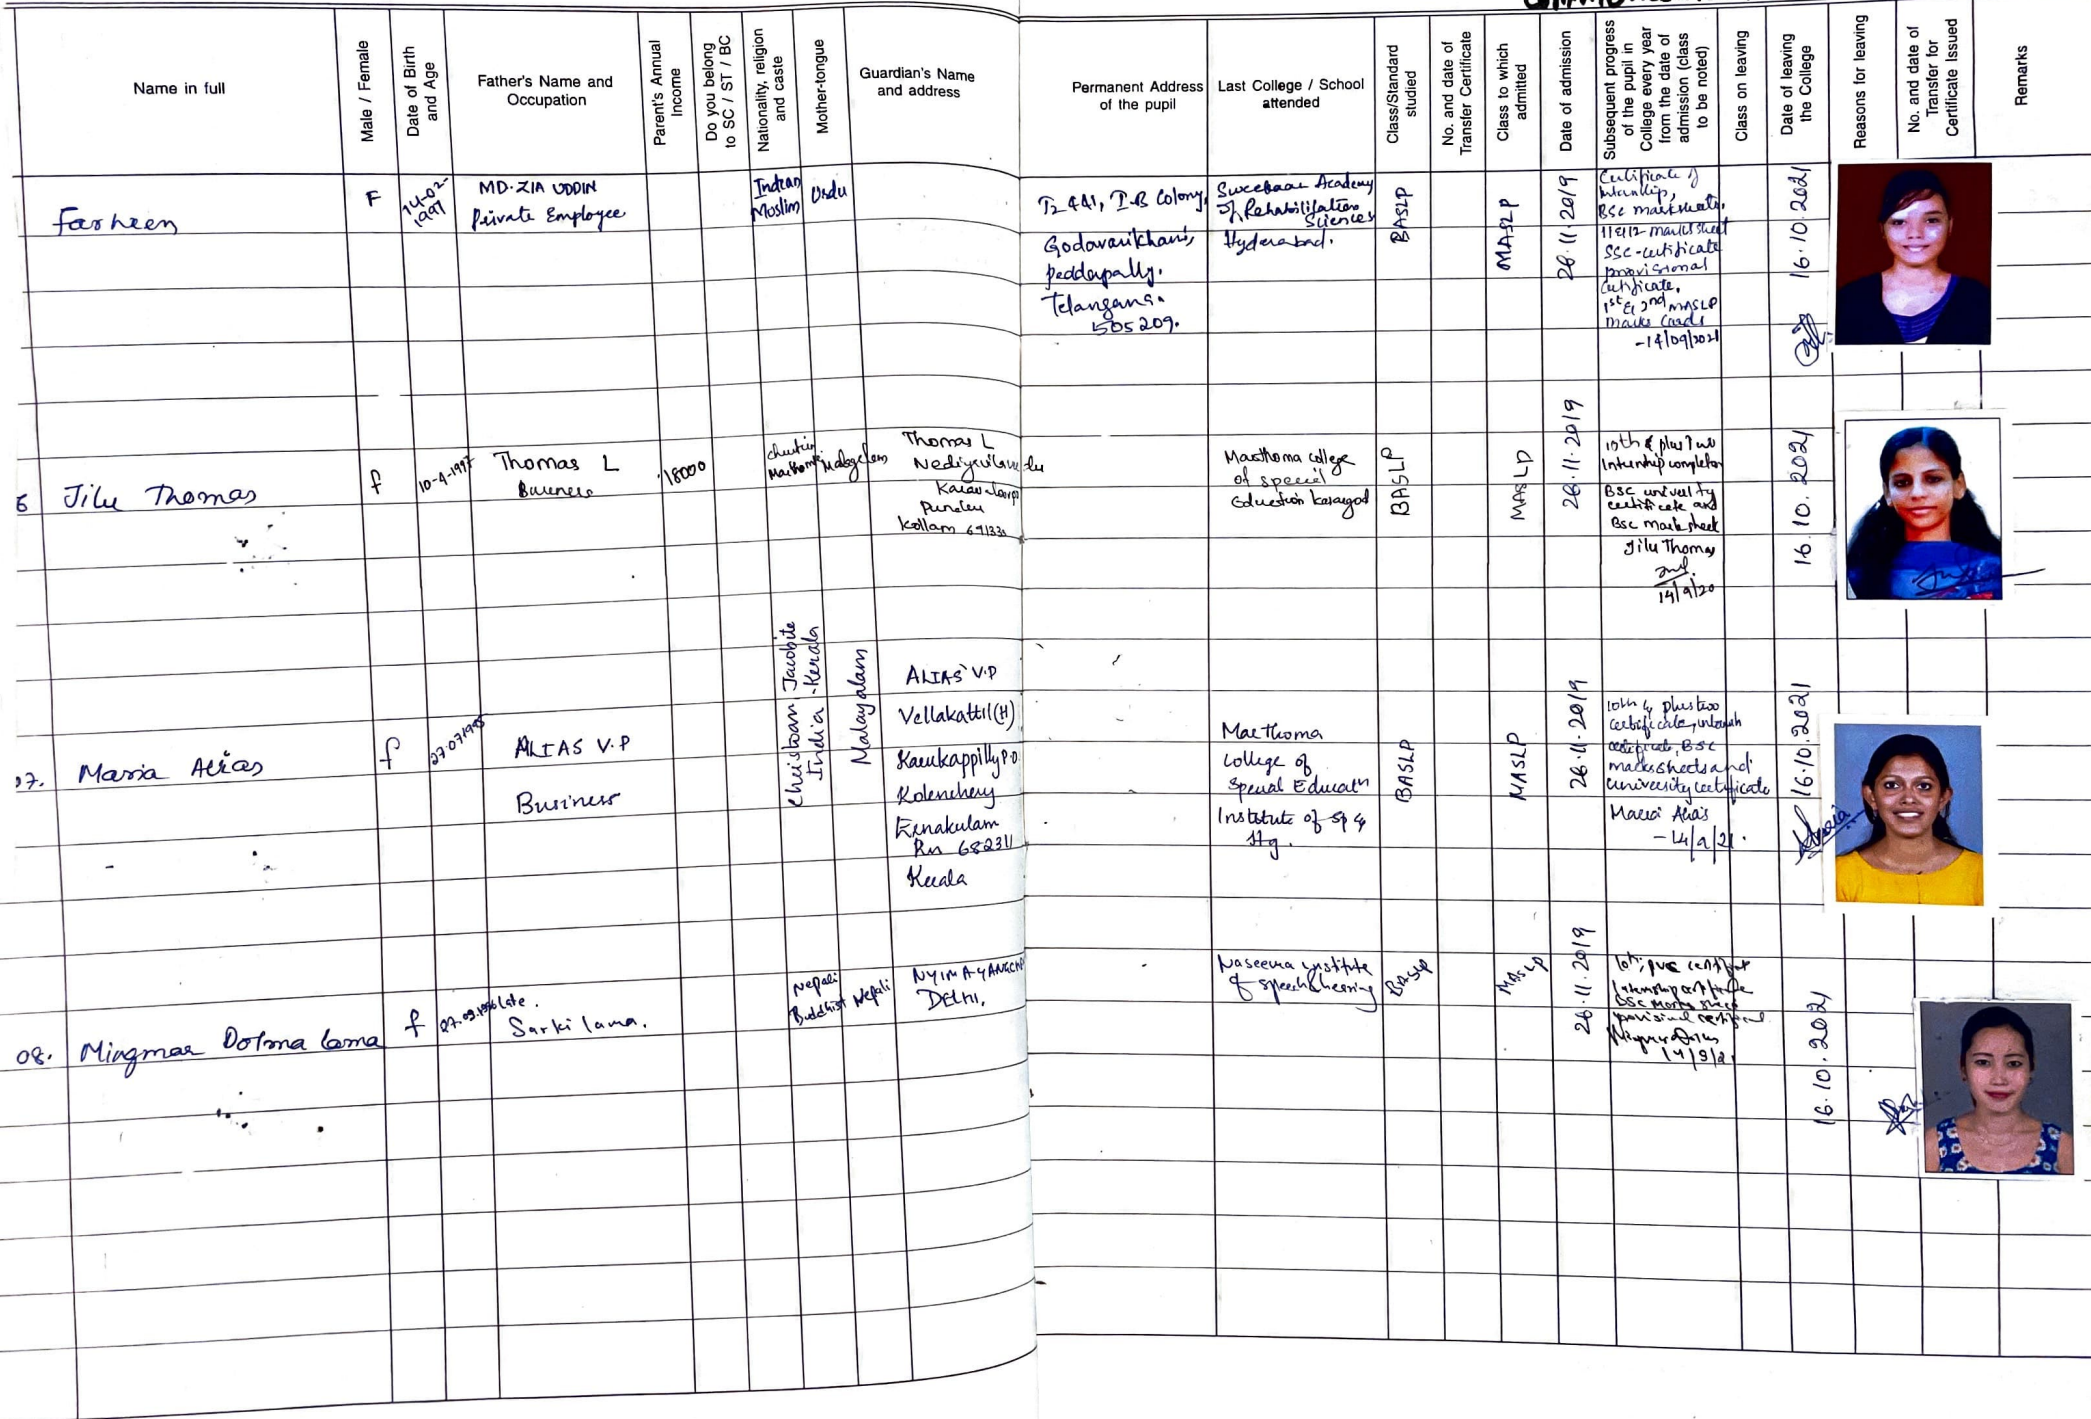 Name in full
Male / Female
Date of Birth and Age
Father's Name and Occupation
Parent's Annual Income
Do you belong to SC / ST / BC
Nationality, religion and caste
Mother-tongue
Guardian's Name and address
Permanent Address of the pupil
Last College / School attended
Class/Standard studied
No. and date of Transfer Certificate
Class to which admitted
Date of admission
Subsequent progress of the pupil in College every year from the date of admission (class to be noted)
Class on leaving
Date of leaving the College
Reasons for leaving
No. and date of Transfer for Certificate Issued
Remarks
Farheen
F
14-02-1997
MD. ZIA UDDIN
Private Employee
Indian
Moslim
Urdu
T2 441, I-B Colony,
Godavarikhani,
peddapally.
Telangana.
505209.
Sweekaar Academy
of Rehabilitation
Sciences
Hyderabad.
BASLP
MASLP
26.11.2019
Certificate of
BSc marksheets,
11&12 marks sheet
SSC-certificate
provisional
Certificate,
1st & 2nd MASLP
marks cards
-14/09/2021
16.10.2021
6 Jilu Thomas
f
10-4-1997
Thomas L
18000
Thomas L
Punalur
Kollam
Marthoma college
of special
Education kasargod
BASLP
MASLP
26.11.2019
10th & plus Two
Internship completion
BSc
certificate and
Bsc mark sheet
Jilu Thomas
14/9/20
16.10.2021
07. Maria Alias
f
ALIAS V.P
Business
Jacobite
India - Kerala
Malayalam
ALIAS V.P
Vellakattil (H)
Karukappilly P.O
Kolenchery
Ernakulam
Pin 682311
Kerala
Marthoma
College of
Special
Institute of sp &
Hg.
BASLP
MASLP
26.11.2019
10th & plus two
certificate,
certificate, BSc
marks sheets and
university certificate
16.10.2021
08. Mingmar Dolma lama
f
late.
Sarki lama.
Nepali
Buddhist
Nepali
Delhi.
Naseema institute
of speech & hearing
BASLP
MASLP
26.11.2019
16.10.2021